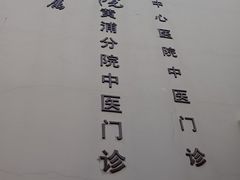 中心医院中医门诊
院黄浦分院中医门诊
属